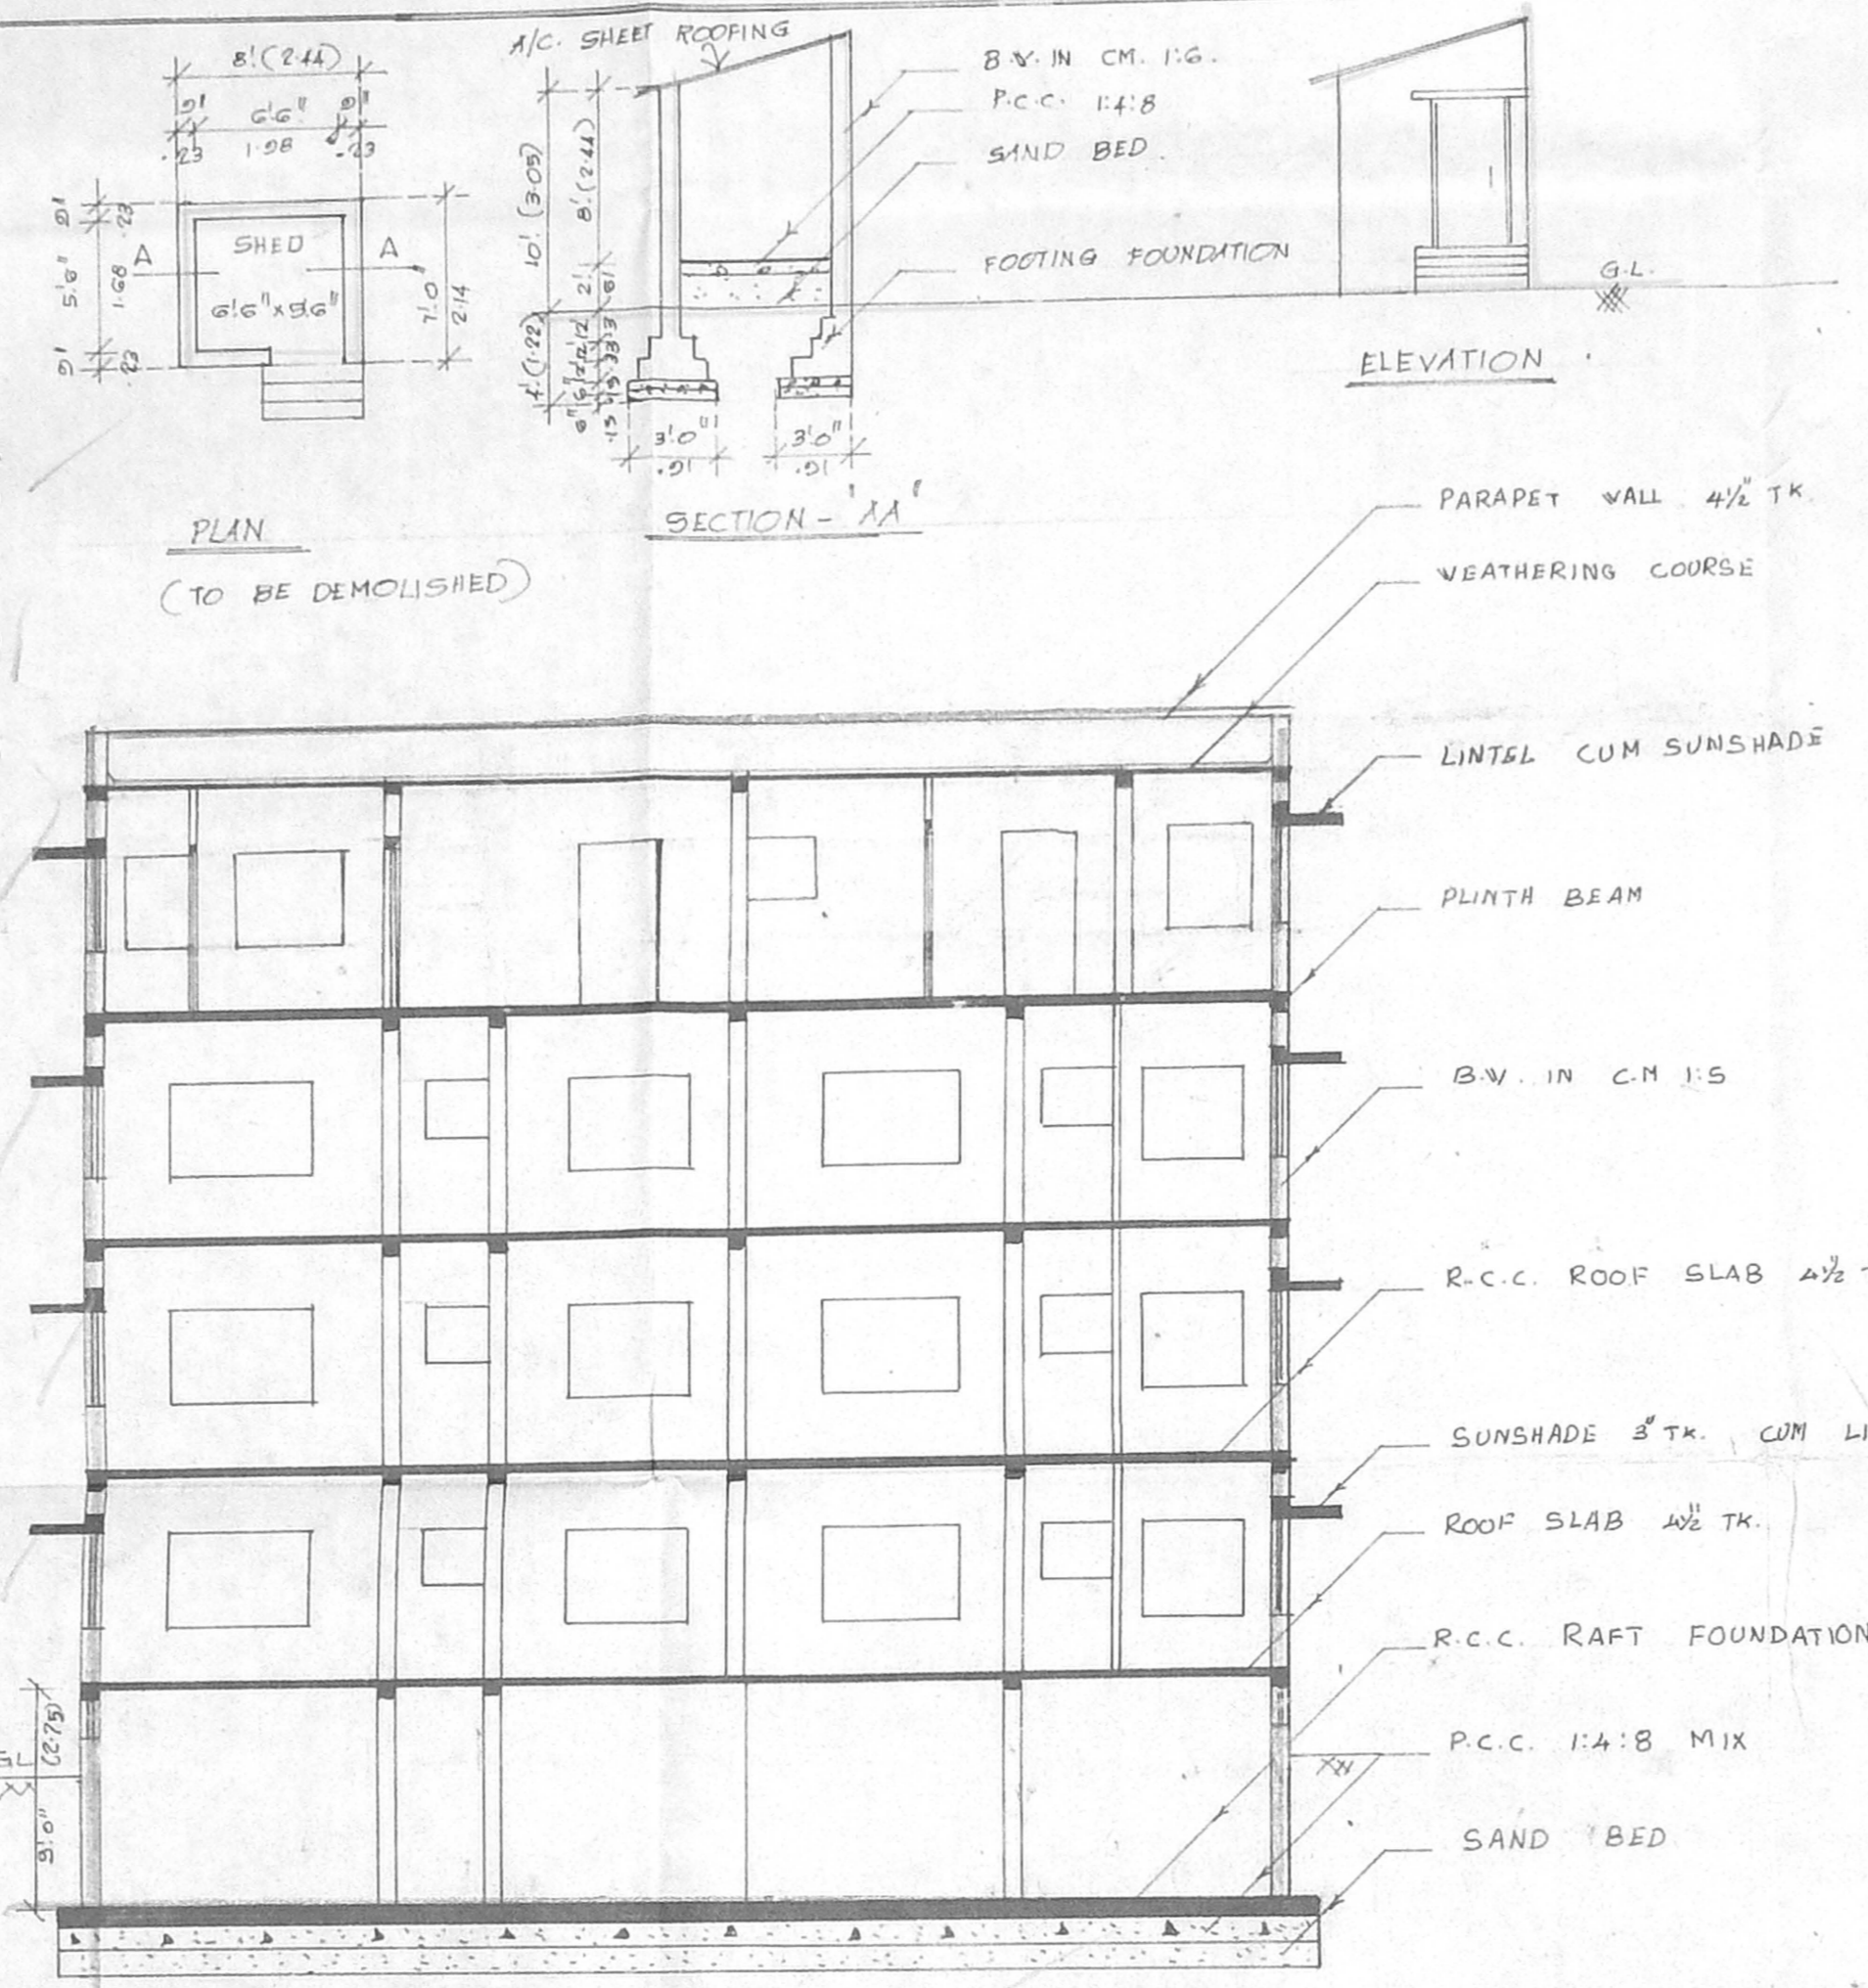 8' (2.44)
9" 6'6" 9"
.23 1.98 .23
9" .23
5'6" 1.68
9" .23
A SHED A
6'6" x 5'6"
7'.0"
2.14
PLAN
(TO BE DEMOLISHED)
A/C. SHEET ROOFING
10'. (3.05)
8'. (2.44)
2'.
.61
4' (1.22)
3'.0"
.91
3'.0"
.91
B.W. IN CM. 1:6.
P.C.C. 1:4:8
SAND BED.
FOOTING FOUNDATION
SECTION - 'AA'
G.L.
ELEVATION
PARAPET WALL 4½" TK.
WEATHERING COURSE
LINTEL CUM SUNSHADE
PLINTH BEAM
B.W. IN C.M 1:5
R.C.C. ROOF SLAB 4½
SUNSHADE 3" TK. CUM LI
ROOF SLAB 4½" TK.
R.C.C. RAFT FOUNDATION
P.C.C. 1:4:8 MIX
SAND BED
GL
9'.0" (2.75)